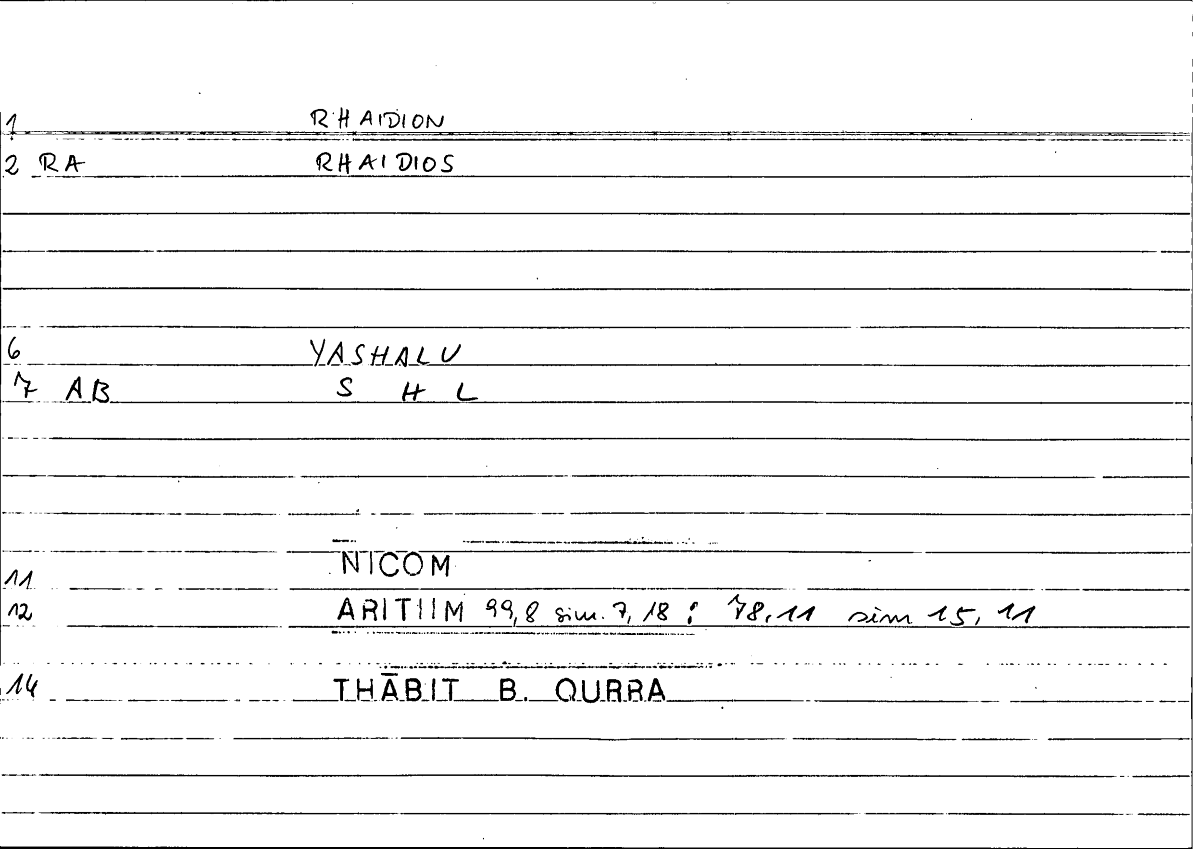 1 RHAIDION
2 RA RHAIDIOS
6 YASHALU
7 AB S H L
NICOM
11
12 ARITIIM 99,8 sim. 7,18 : 78,11 sim 15, 11
14 THĀBIT B. QURRA